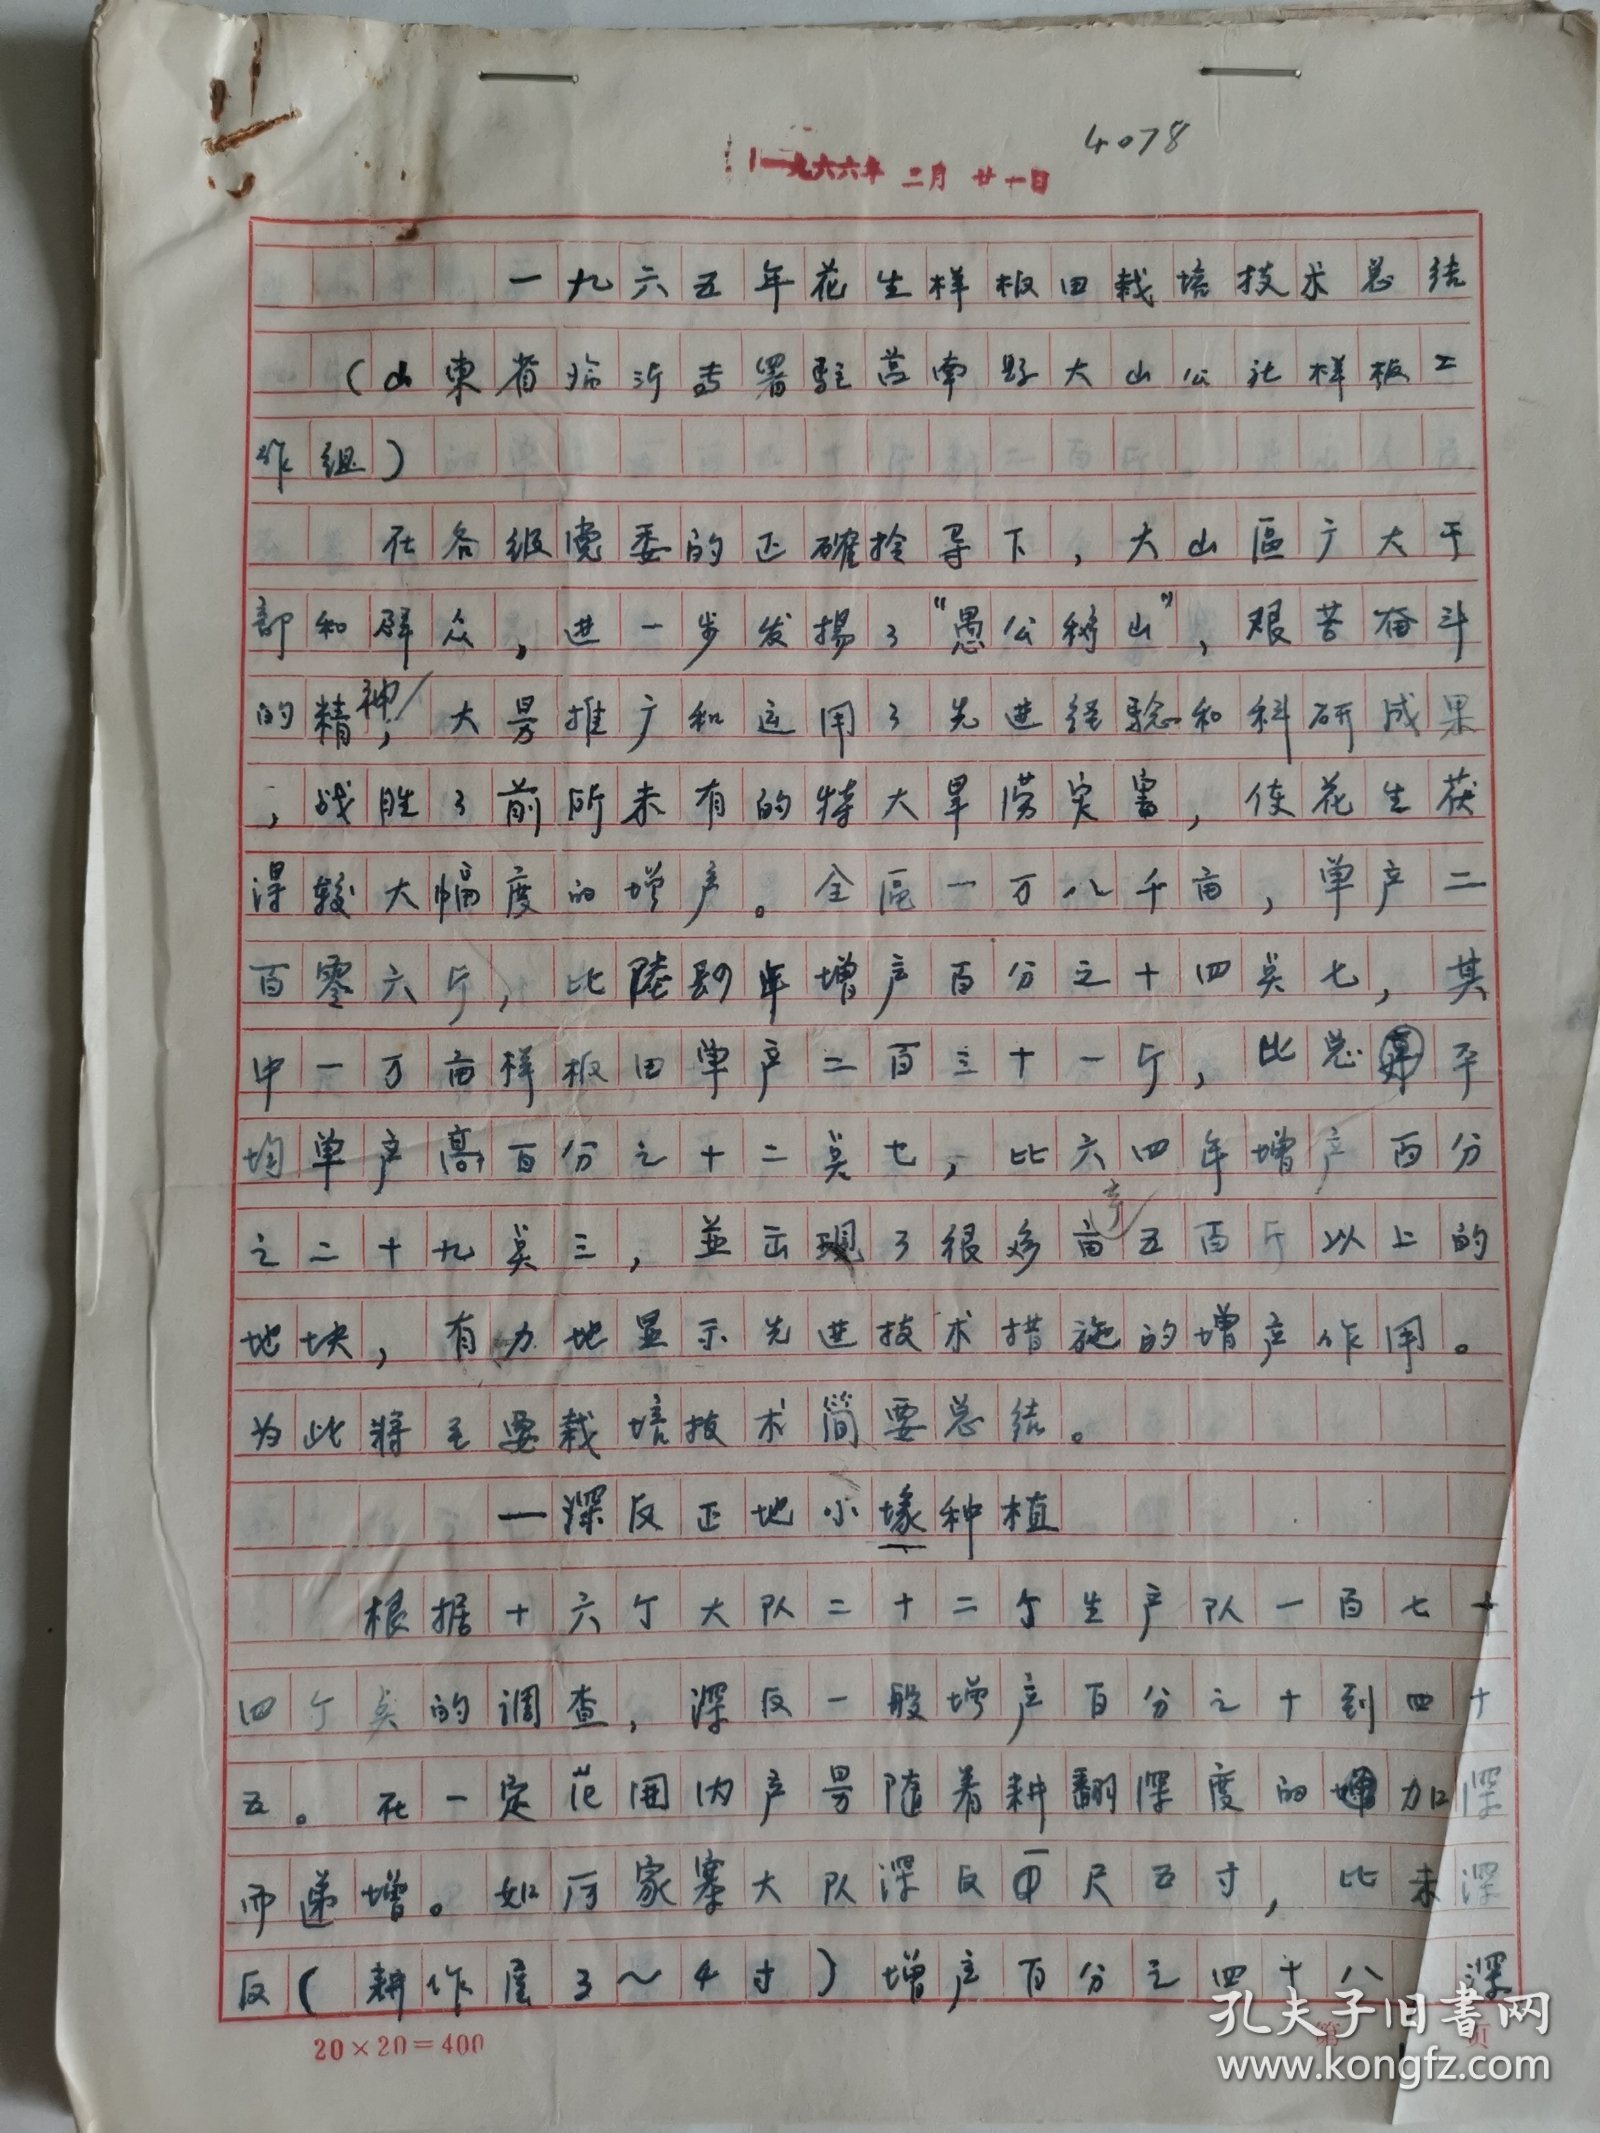 4078
一九六六年 二月 廿一日
一九六五年花生样板田栽培技术总结
(山東省临沂专署駐莒南县大山公社样板工
作组)
在各级党委的正確领导下,大山區广大干
部和群众,进一步发揚了"愚公移山",艰苦奋斗
的精神,大量推广和运用了先进经驗和科研成果
,战胜了前所未有的特大旱涝灾害,使花生获
得较大幅度的增产。全區一万八千亩,单产二
百零六斤,比 年增产百分之十四点七,其
中一万亩样板田单产二百三十一斤,比总 平
均单产高百分之十二点七,比六四年增产百分
之二十九点三,並出现了很多亩产五百斤以上的
地块,有力地显示先进技术措施的增产作用。
为此将主要栽培技术简要总结。
一深反正地小塚种植
根据十六个大队二十二个生产队一百七十
四个点的调查,深反一般增产百分之十到四十
五。在一定范围内产量随着耕翻深度的 加深
而递增。如厉家寨大队深反一尺五寸,比未深
反(耕作层3～4寸)增产百分之四十八 深
20×20=400
第 页
孔夫子旧書网
www.kongfz.com